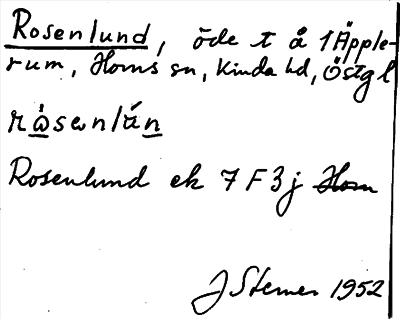 Rosenlund, öde t å 1 Äpple-
rum, Horns sn, Kinda hd, Östgl
råsənlán
Rosenlund ek 7 F 3 j Horn
J Sterner 1952